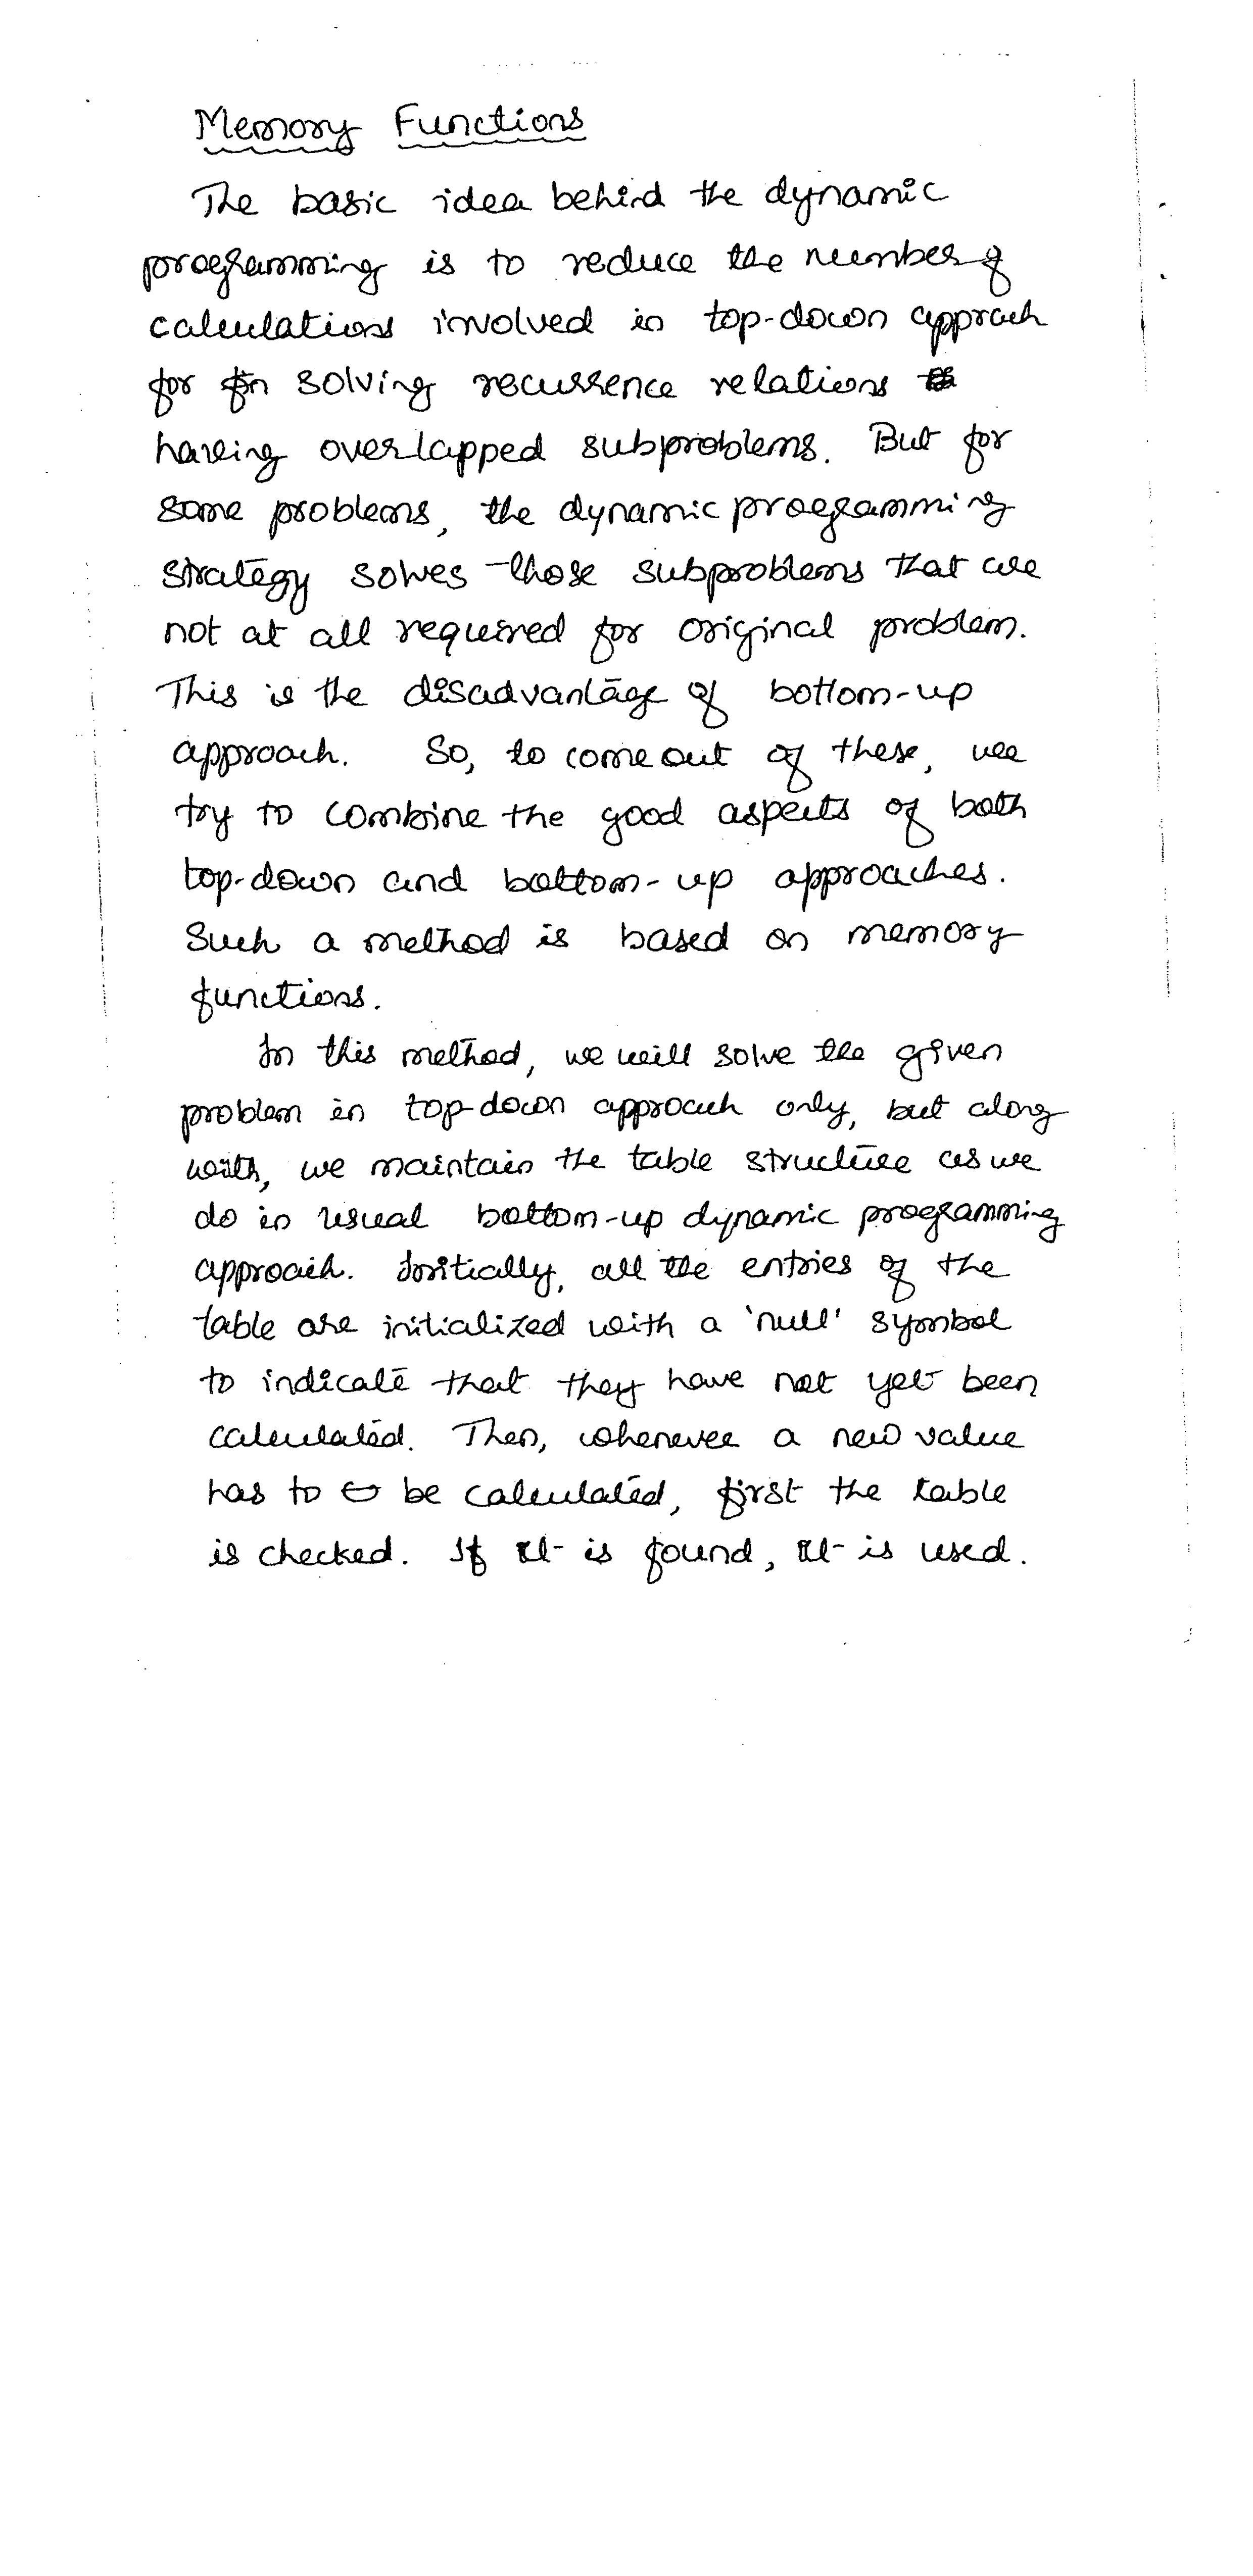 Memory Functions
The basic idea behind the dynamic
programming is to reduce the number of
calculations involved in top-down approach
for solving recurrence relations
having overlapped subproblems. But for
some problems, the dynamic programming
strategy solves those subproblems that are
not at all required for original problem.
This is the disadvantage of bottom-up
approach. So, to come out of these, we
try to combine the good aspects of both
top-down and bottom-up approaches.
Such a method is based on memory
functions.
In this method, we will solve the given
problem in top-down approach only, but along
with, we maintain the table structure as we
do in usual bottom-up dynamic programming
approach. Initially, all the entries of the
table are initialized with a 'null' symbol
to indicate that they have not yet been
calculated. Then, whenever a new value
has to be calculated, first the table
is checked. If it is found, it is used.